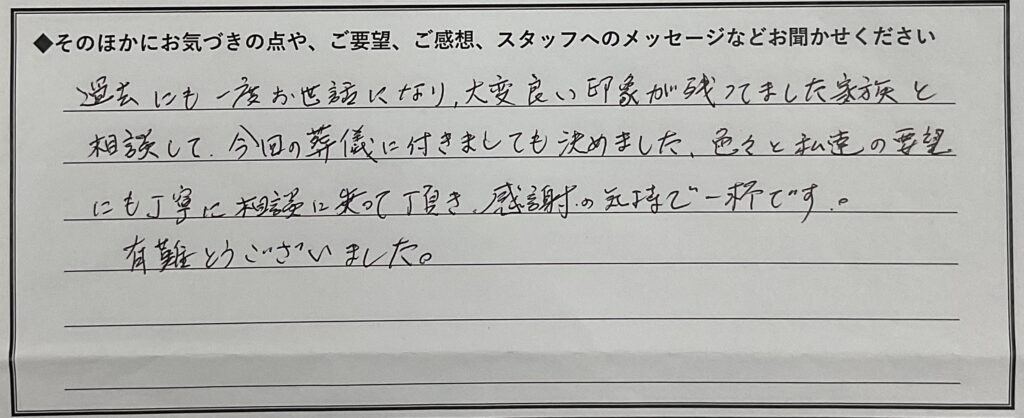 ◆そのほかにお気づきの点や、ご要望、ご感想、スタッフへのメッセージなどお聞かせください
過去にも一度お世話になり、大変良い印象が残ってました家族と
相談して、今回の葬儀に付きましても決めました、色々と私達の要望
にも丁寧に相談に乗って頂き、感謝の気持で一杯です。
有難とうございました。